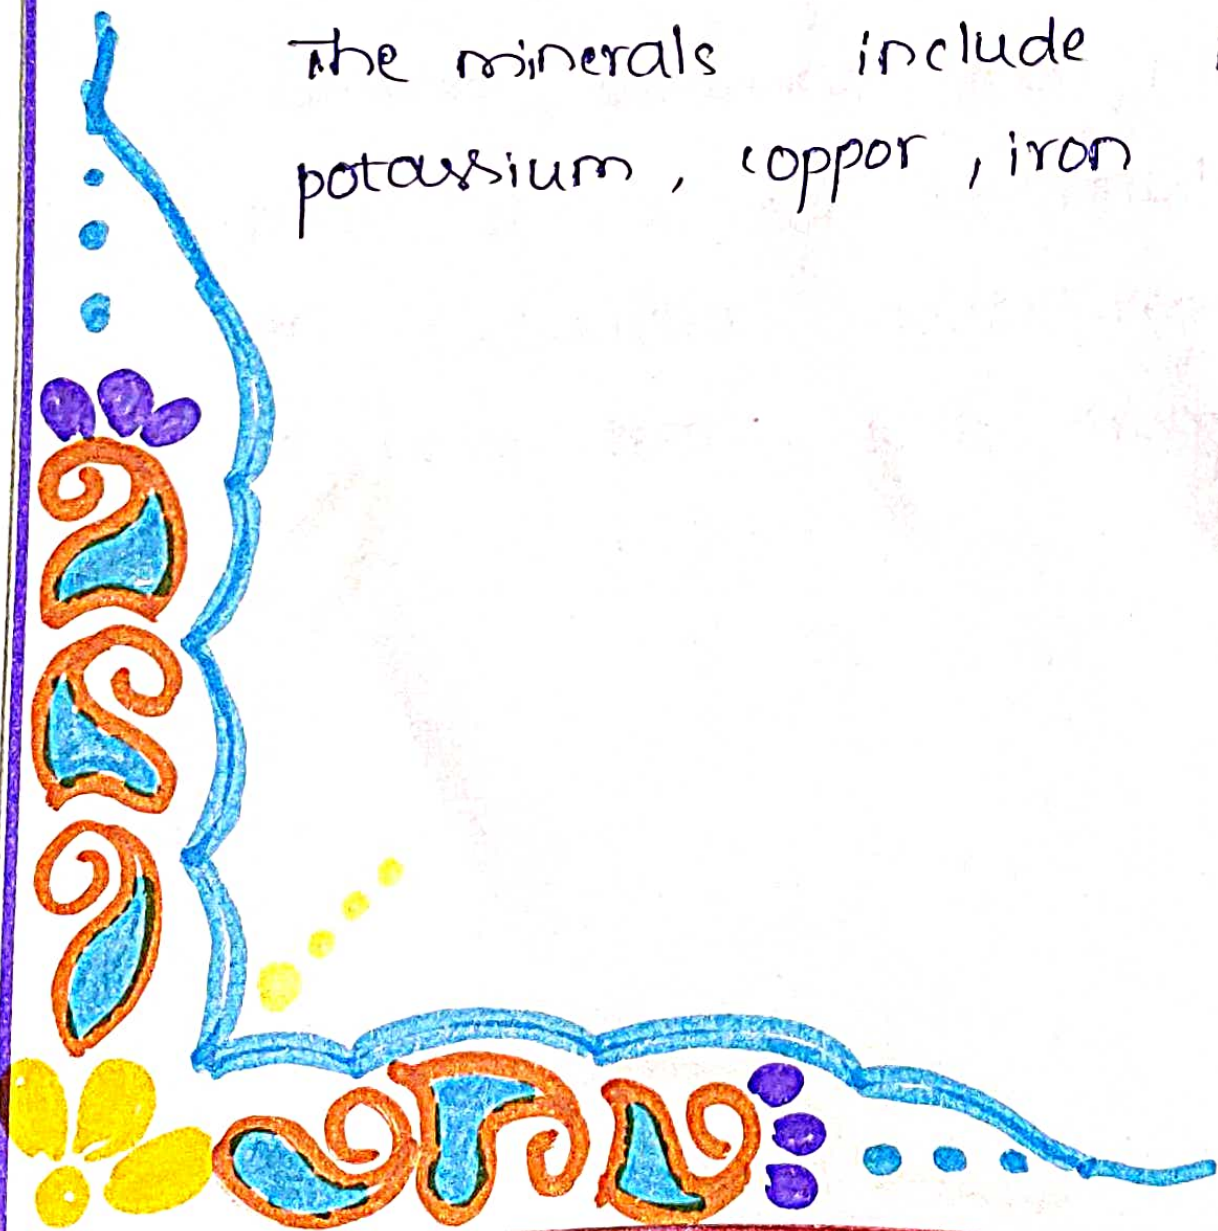 The minerals include
potassium, coppor, iron